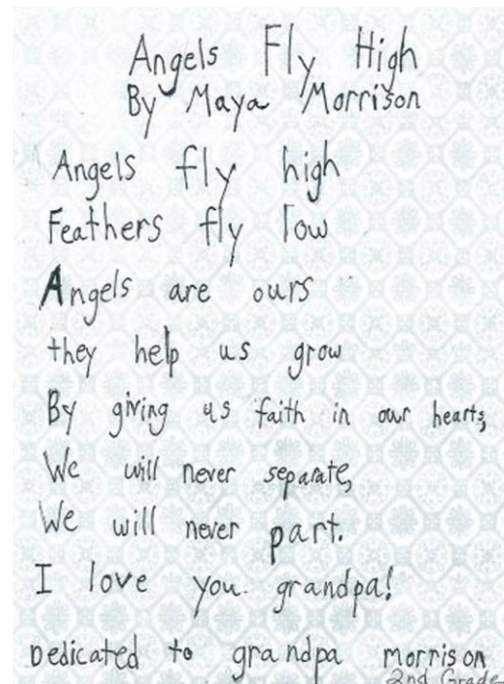 Angels Fly High
By Maya Morrison
Angels fly high
Feathers fly low
Angels are ours
they help us grow
By giving us faith in our hearts,
We will never separate,
We will never part.
I love you. grandpa!
Dedicated to grandpa morrison
2nd Grade